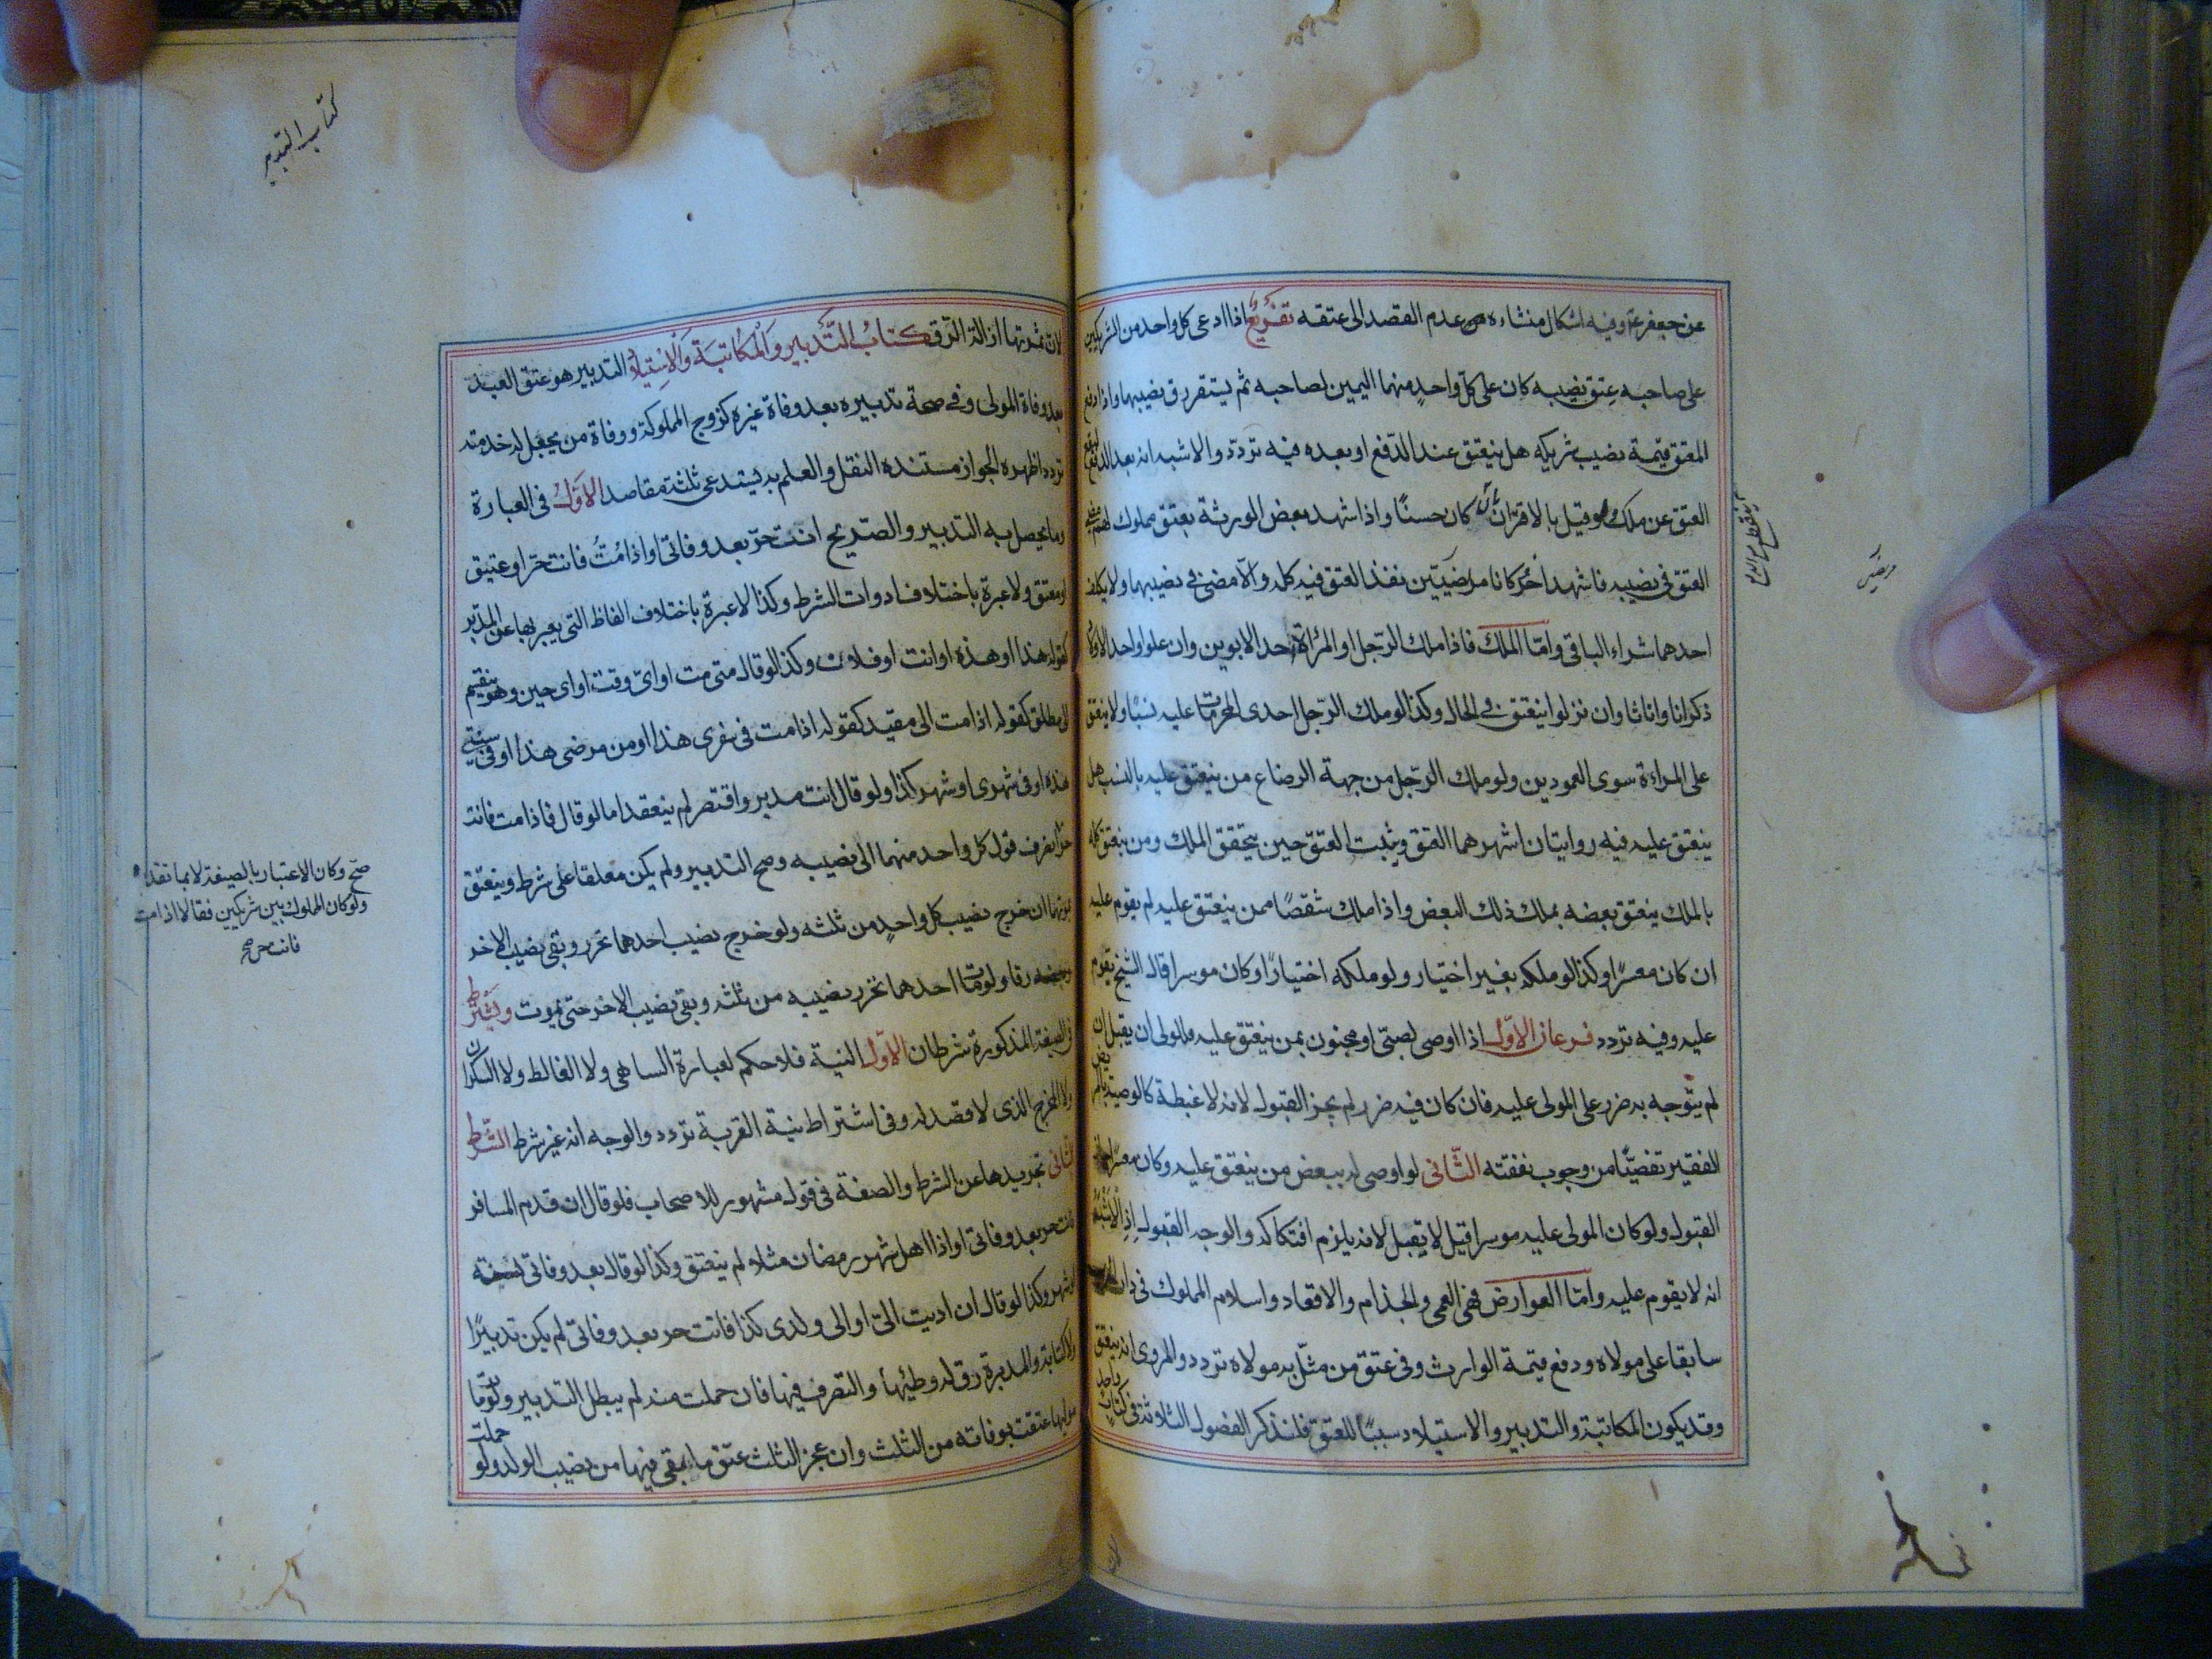 عن جعفر ع وفيه اشكال منشاءه عدم القصد الى عتقه تفريع اذا ادعى كل واحد من الشريكين
على صاحبه عتق نصيبه كان على كل واحد منهما اليمين لصاحبه ثم يستقر رق نصيبهما واذا دفع
المعتق قيمة نصيب شريكه هل ينعتق عند الدفع او بعده فيه تردد والاشبه انه بعد الدفع ليقع
العتق عن ملك ولو قيل بالاقتران كان حسنا واذا شهد بعض الورثة بعتق مملوك لهم مضى
العتق فى نصيبه فان شهد اخر وكانا مرضيين نفذ العتق فيه كله والا مضى فى نصيبهما ولا يكلف
احدهما شراء الباقى واما الملك فاذا ملك الرجل او المراة احد الابوين وان علوا واحد الاولاد
ذكرانا واناثا وان نزلوا ينعتق فى الحال وكذا لو ملك الرجل احدى المحرمات عليه نسبا ولا ينعتق
على المراءة سوى العمودين ولو ملك الرجل من جهة الرضاع من ينعتق عليه بالنسب هل
ينعتق عليه فيه روايتان اشهرهما العتق ويثبت العتق حين يتحقق الملك ومن ينعتق كله
بالملك ينعتق بعضه بملك ذلك البعض واذا ملك شقصا ممن ينعتق عليه لم يقوم عليه
ان كان معسرا وكذا لو ملكه بغير اختيار ولو ملكه اختيارا وكان موسرا قال الشيخ يقوم
عليه وفيه تردد فرعان الاول اذا اوصى لصبى او مجنون بمن ينعتق عليه فللولى ان يقبل ان
لم يتوجه به ضرر على المولى عليه فان كان فيه ضرر لم يجز القبول لانه لا غبطة كالوصية بالمريض
الفقير تفصيا من وجوب نفقته الثانى لو اوصى له ببعض من ينعتق عليه وكان معسرا جاز
القبول ولو كان المولى عليه موسرا قيل لا يقبل لانه يلزم افتكاكه والوجه القبول اذ الاشبه
انه لا يقوم عليه واما العوارض فهى العمى والجذام والاقعاد واسلام المملوك فى دار الحرب
سابقا على مولاه ودفع قيمة الوارث وفى عتق من مثل به مولاه تردد والمروى انه ينعتق
وقد يكون المكاتبة والتدبير والاستيلاد سببا للعتق فلنذكر الفصول الثلاثة فى كتاب واحد
مرتضى
كتاب التدبير
لان ثمرتها ازالة الرق كتاب التدبير والمكاتبة والاستيلاد التدبير هو عتق العبد
بعد وفاة المولى وفى صحة تدبيره بعد وفاة غيره كزوج المملوكة ووفاة من يجعل له خدمته
تردد اظهره الجواز مستنده النقل والعلم به يستدعى ثلثة مقاصد الاول فى العبارة
وما يحصل به التدبير والصريح انت حر بعد وفاتى او اذا مت فانت حر او عتيق
او معتق ولا عبرة باختلاف ادوات الشرط وكذا لا عبرة باختلاف الفاظ التى يعبر بها عن المدبر
كقوله هذا او هذه او انت او فلان وكذا لو قال متى مت او اى وقت او اى حين وهو ينقسم
الى مطلق كقوله اذا مت الى مقيد كقوله اذا مت فى سفرى هذا او من مرضى هذا او فى سنتى
هذه او فى شهرى او شهر كذا ولو قال انت مدبر واقتصر لم ينعقد اما لو قال فاذا مت فانت
حر انصرف قول كل واحد منهما الى نصيبه وصح التدبير ولم يكن معلقا على شرط وينعتق
بموتهما ان خرج نصيب كل واحد من ثلثه ولو خرج نصيب احدهما تحرر وبقى نصيب الاخر
وبعضه رقا ولو مات احدهما تحرر نصيبه من ثلثه وبقى نصيب الاخر حتى يموت ويشترط
فى الصيغة المذكورة شرطان الاول النية فلا حكم لعبارة الساهى ولا الغالط ولا السكران
ولا المحرج الذى لا قصد له وفى اشتراط نية القربة تردد والوجه انه غير شرط الشرط
الثانى تجريدها عن الشرط والصفة فى قول مشهور للاصحاب فلو قال ان قدم المسافر
فانت حر بعد وفاتى او اذا اهل شهر رمضان مثلا لم ينعتق وكذا لو قال بعد وفاتى لسنة
او شهر وكذا لو قال ان اديت الى او الى ولدى كذا فانت حر بعد وفاتى لم يكن تدبيرا
ولا كتابة والمدبرة رق له وطئيها والتصرف فيها فان حملت منه لم يبطل التدبير ولو مات
مولاها عتقت بوفاته من الثلث وان عجز الثلث عتق ما بقى فيها من نصيب الولد ولو حملت
صح وكان الاعتبار بالصيغة لا بما تقدم
ولو كان المملوك بين شريكين فقالا اذا مت
فانت حر صح